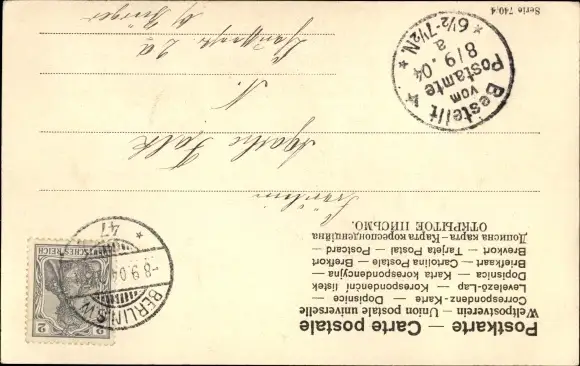 Postkarte — Carte postale
Weltpostverein — Union postale universelle
Correspondenz-Karte — Dopisnice —
Levelező-Lap — Korespondenční lístek
Dopisnica — Karta korespondencyjna —
Briefkaart — Cartolina Postale — Brefkort
Brevkort — Tarjeta Postal — Postcard
Дописна карта — Карта кореспонденційна
ОТКРЫТОЕ ПИСЬМО.
Fräulein
Agathe Falk
N.
2a
Serie 740.4
Bestellt
vom
Postamte
8/9.04
a
* 6½-7½N. *
BERLIN S.W.
-8.9.04
* 47
DEUTSCHES REICH
2 2